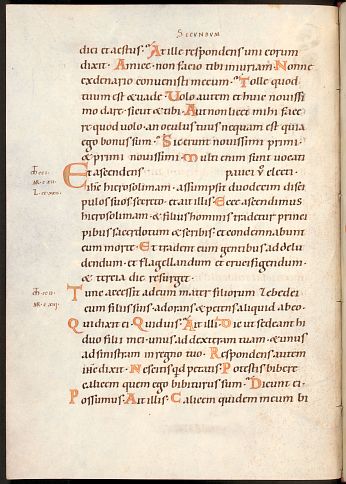 SECUNDUM
diei et aestus. At ille respondens uni eorum
dixit. Amice non facio tibi iniuriam. Nonne
ex denario convenisti mecum. Tolle quod
tuum est & vade. Volo autem et huic novissi
mo dare sicut & tibi. Aut non licet mihi face
re quod volo. an oculus tuus nequam est quia
ego bonus sum. Sic erunt novissimi primi.
& primi novissimi. Multi enim sunt vocati
Et ascendens pauci v electi.
ihc hierosolimam. assumpsit duodecim disci
pulos suos secreto. et ait illis. Ecce ascendimus
hierosolimam. & filius hominis tradetur princi
pibus sacerdotum & scribis. et condemnabunt
eum morte. Et tradent eum gentibus ad delu
dendum. et flagellandum et crucifigendum.
& tercia die resurget.
Tunc accessit ad eum mater filiorum Zebedei
cum filiis suis. adorans. & petens aliquid ab eo.
Qui dixit ei. Quid vis. Ait illi. Dic ut sedeant hi
duo filii mei. unus ad dexteram tuam. & unus
ad sinistram in regno tuo. Respondens autem
ihc dixit. Nescitis quid petatis. Potestis bibere
calicem quem ego bibiturus sum. Dicunt ei.
Possumus. Ait illis. Calicem quidem meum bi